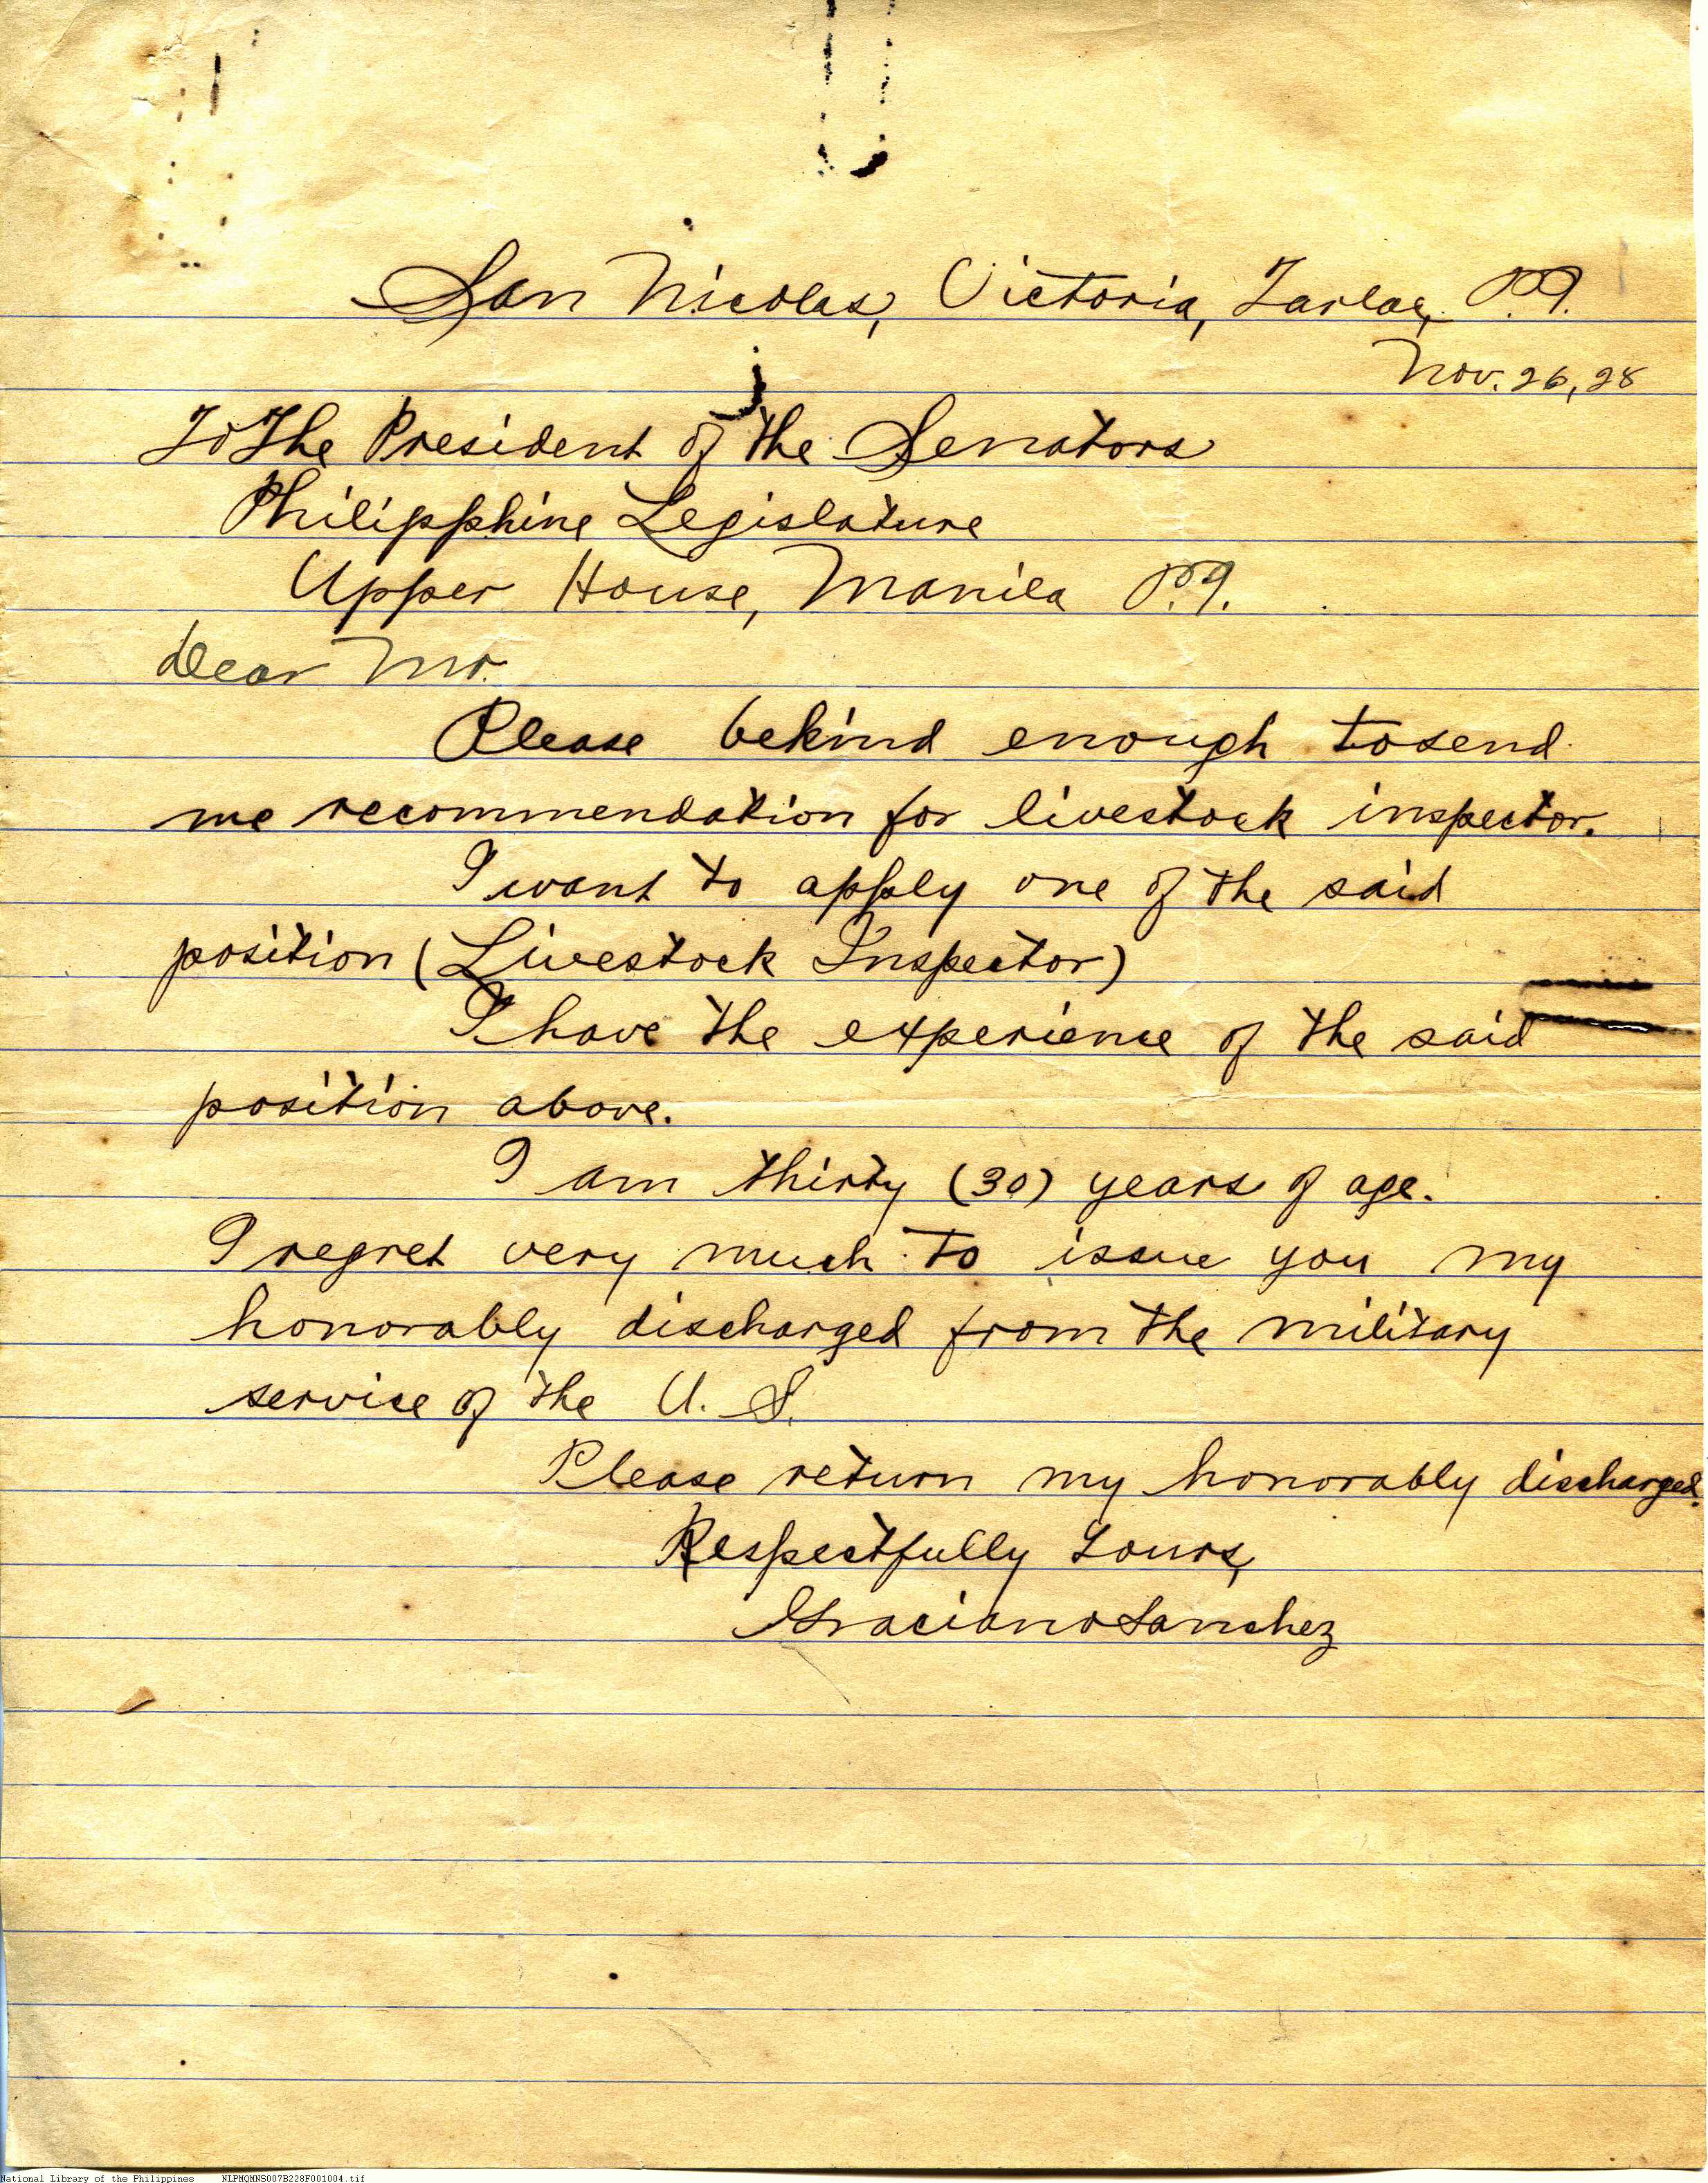 San Nicolas, Victoria, Tarlac, P.I.
Nov. 26, 28
To The President of the Senators
Philipphine Legislature
Upper House, Manila P.I.
Dear Mr.
Please bekind enough tosend
me recommendation for livestock inspector.
I want to apply one of the said
position (Livestock Inspector)
I have the experience of the said
position above.
I am thirty (30) years of age.
I regret very much to issue you my
honorably discharged from the military
service of the U. S.
Please return my honorably discharged.
Respectfully Yours,
Graciano Sanchez
National Library of the Philippines NLPMQMNS007B228F001004.tif